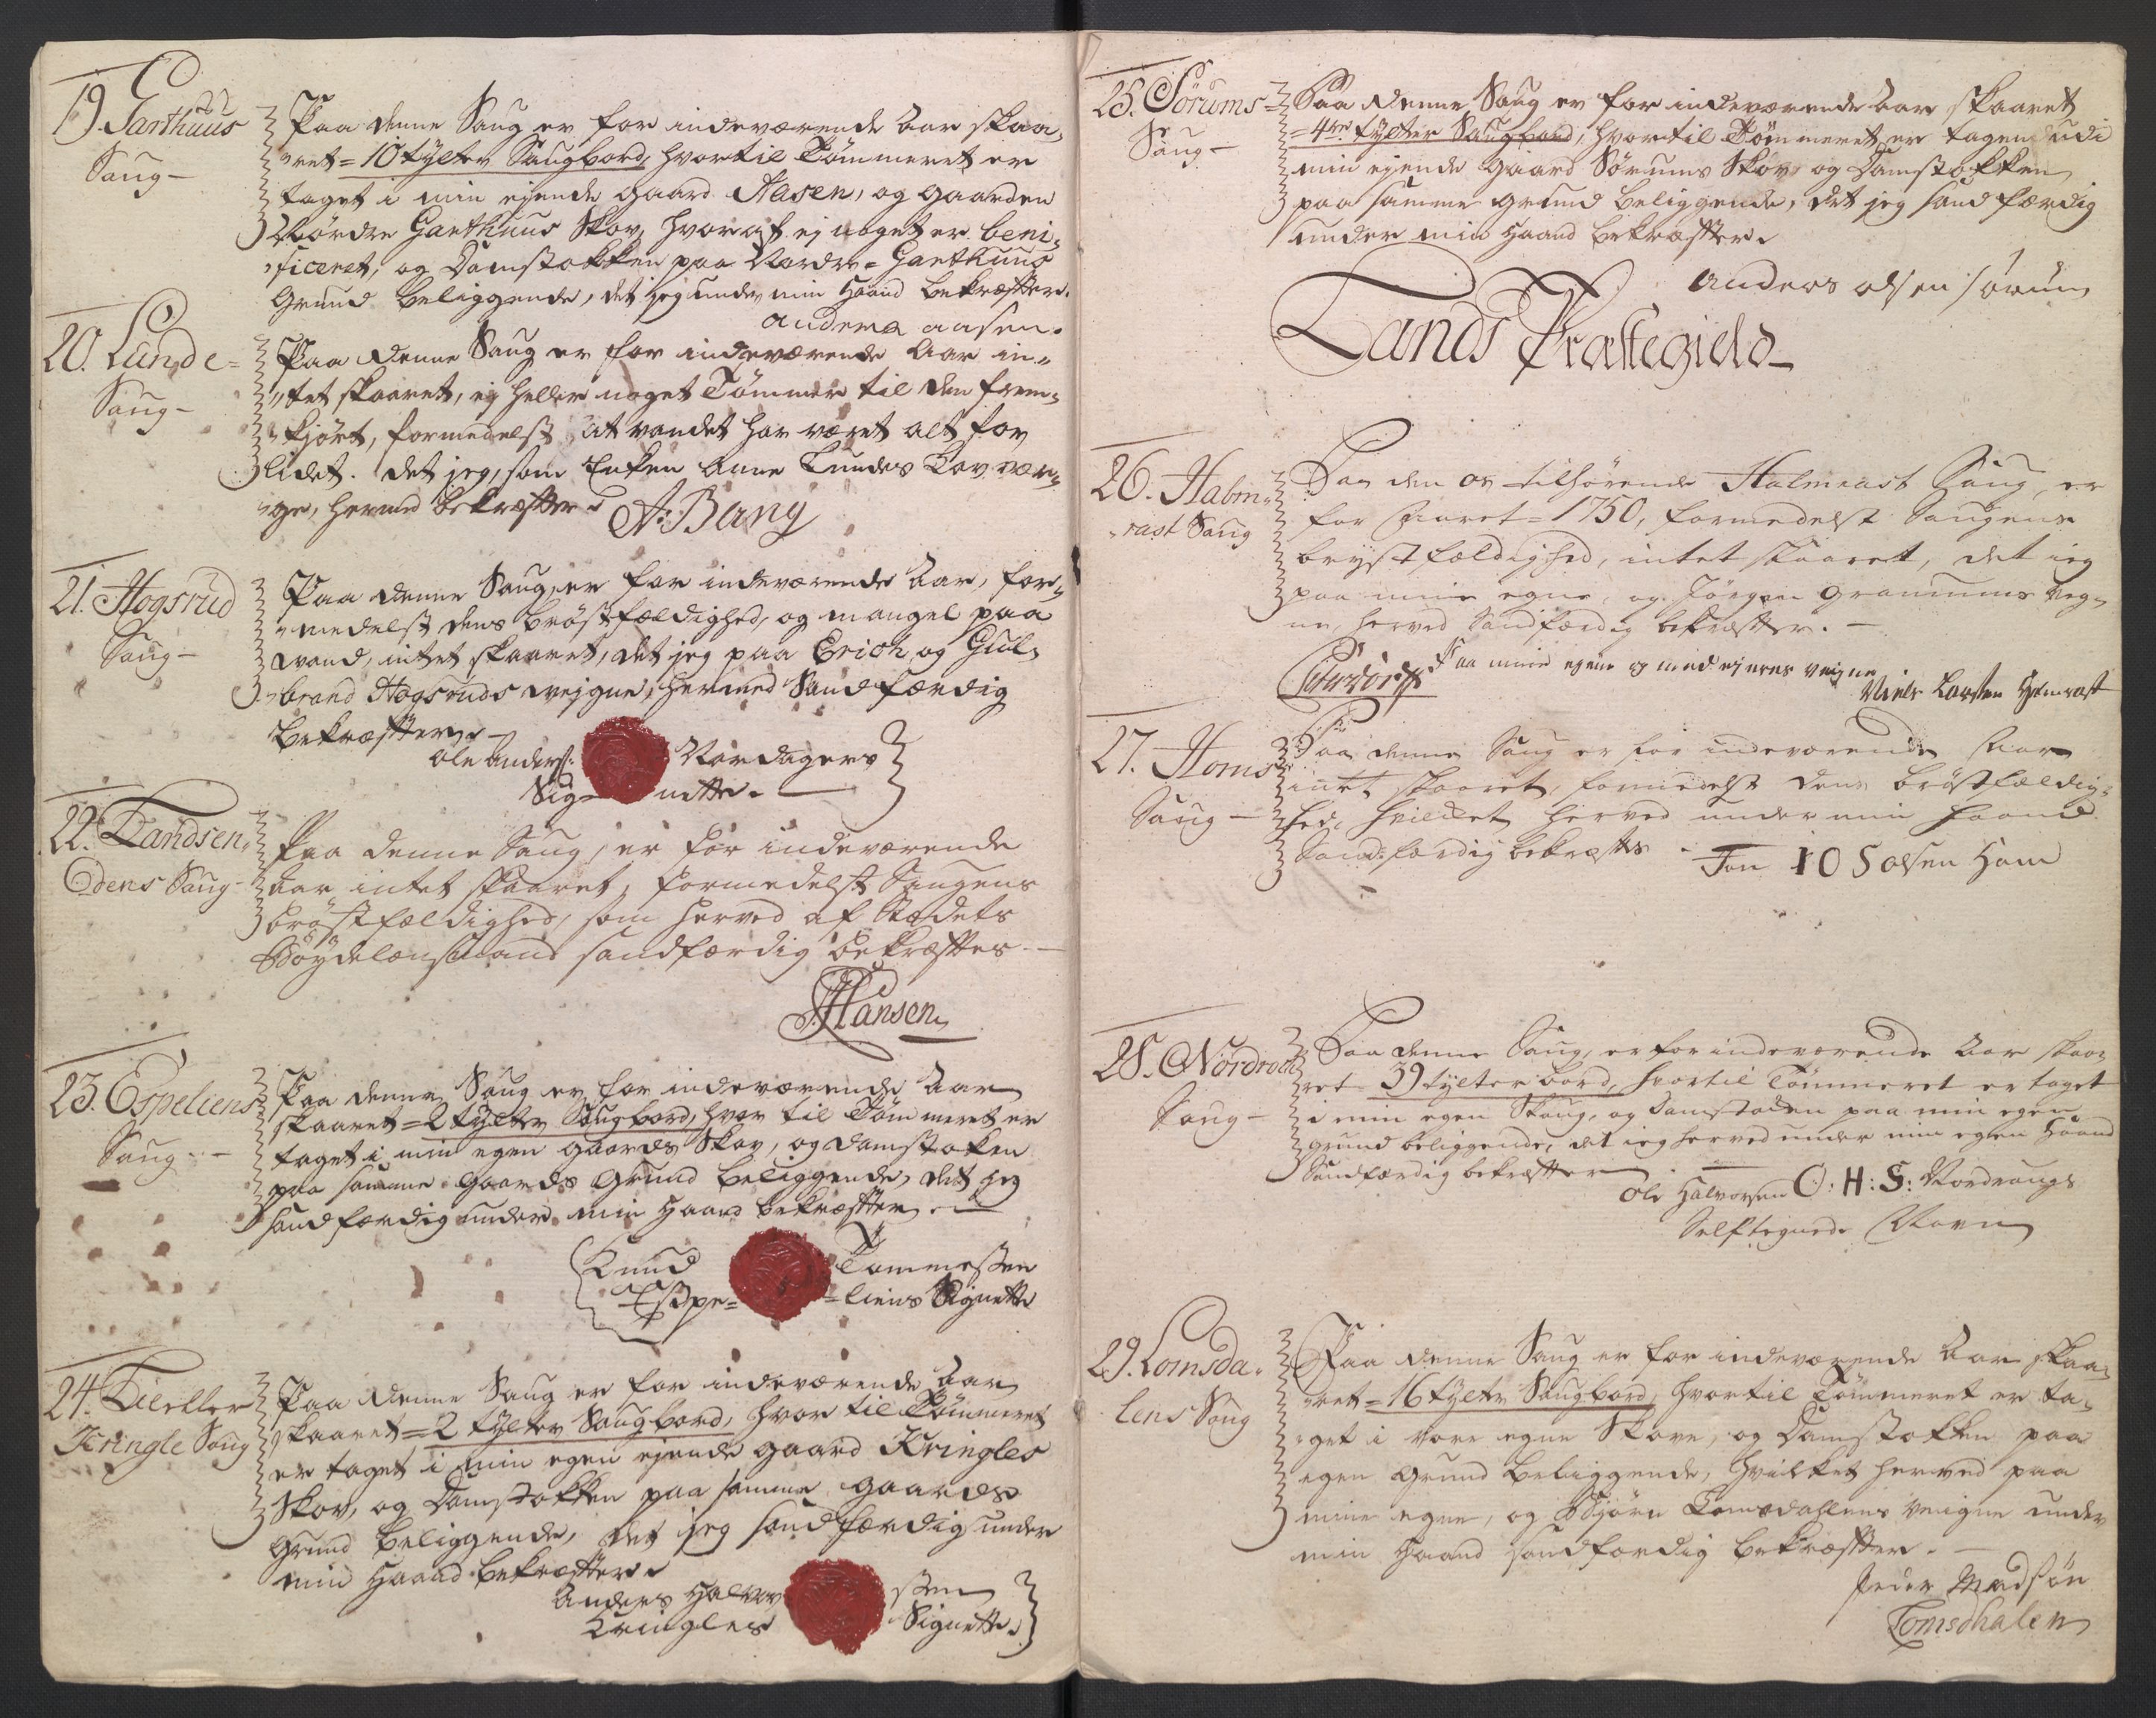 19. Garthuus
Saug -
Paa denne Saug er for indeværende Aar skaa„
„ret = 10 tylter Saugbord, hvortil Tømmeret er
taget i min ejende gaard Aasen, og gaarden
Nordre Garthuus Skov, hvoraf ej noget er beni„
„ficeret, og Damstokken paa Nordre = Garthuus
Grund beliggende, det jeg under min Haand bekræfter.
anders aasen.
20. Lunde =
Saug -
Paa denne Saug er for indeværende Aar in„
„tet skaaret, ej heller noget Tømmer til den frem„
„kjørt, formedelst at vandet har været alt for
lidet. det jeg, som Enken Anne Lundes Lav vær„
„ge, hermed bekræfter
A: Bang
21. Hogsrud
Saug -
Paa denne Saug, er for indeværende Aar, for„
„medelst dens brøstfældighed, og mangel paa
vand, intet skaaret, det jeg paa Erich og Gul„
„brand Hogsruds vejgne, hermed Sandfærdig
bekræfter -
Ole Anders: Nordagers
Sig= nette. -
22. Landsen„
dens Saug -
Paa denne Saug, er for indeværende
Aar intet skaaret, formedelst Saugens
brøstfældighed, som herved af Stædets
Bøydelænsmand sandfærdig bekræftes -
Hansen
23. Espeliens
Saug -
Paa denne Saug er for indeværende Aar
skaaret = 2 tylter Saugbord, hvor til Tømmeret er
taget i min egen gaards Skov, og damstoken
paa samme gaards Grund beliggende, det jeg
sandfærdig under min Haand bekræfter. -
Knud Tommessen
Espe= = liens Signette
24.
Kringle Saug
Paa denne Saug er for indeværende Aar
skaaret = 2 tylter Saugbord, hvor til Tømmeret
er taget i min egen ejende gaard Kringles
Skov, og Damstokken paa samme gaards
Grund beliggende, det jeg sandfærdig under
min Haand bekræfter
Anders Halvor ssen
Kringles Signette.
25. Sørums =
Saug -
Paa denne Saug er for indeværende Aar skaaret
= 4re tylter Saugbord, hvortil Tømmeret er tagen udi
min ejende gaard Sørums Skov, og Damstokken
paa samme grund beliggende, det jeg sandfærdig
under min Haand bekræfter
Anders olsen sørum
Lands Præstegield -
26. Halm„
„rast Saug
Paa den os tilhørende Halmrast Saug, er
for Aaret = 1750, formedelst Saugens
brystfældighed, intet skaaret, det ieg
paa mine egne, og Jørgen Granums Veg„
ne, herved Sandfærdig bekræfter. -
Paa mine egene og med ejeres veigne
Niels Larsen Halmrast
27. Homs
Saug -
Paa denne Saug er for indeværende Aar
intet skaaret, formedelst dens brøstfældig„
hed, hvilket herved under min Haand
Sandfærdig bekræfte. -
Jon IOS olsen Hom
28. Nordroch
Saug -
Paa denne Saug, er for indeværende Aar skaa„
ret 39 tylter bord, hvortil Tømmeret er taget
i min egen Skoug, og Damstoken paa min egen
grund beliggende, det ieg herved under min egen Haand
Sandfærdig bekræfter -
Ole Halvorsen O: H: S: Nordraags
Selftegnede Navn
29. Lomsda„
lens Saug
Paa denne Saug er for indeværende Aar skaa„
„ret = 16 tylter Saugbord, hvortil Tømmeret er ta„
„get i vore egne Skove, og Damstokken paa
egen Grund beliggende, hvilket herved paa
mine egne, og Bjørn Lomsdahlens veigne under
min Haand sandfærdig bekræfter. -
Peder Madsøn
Lomsdhalen